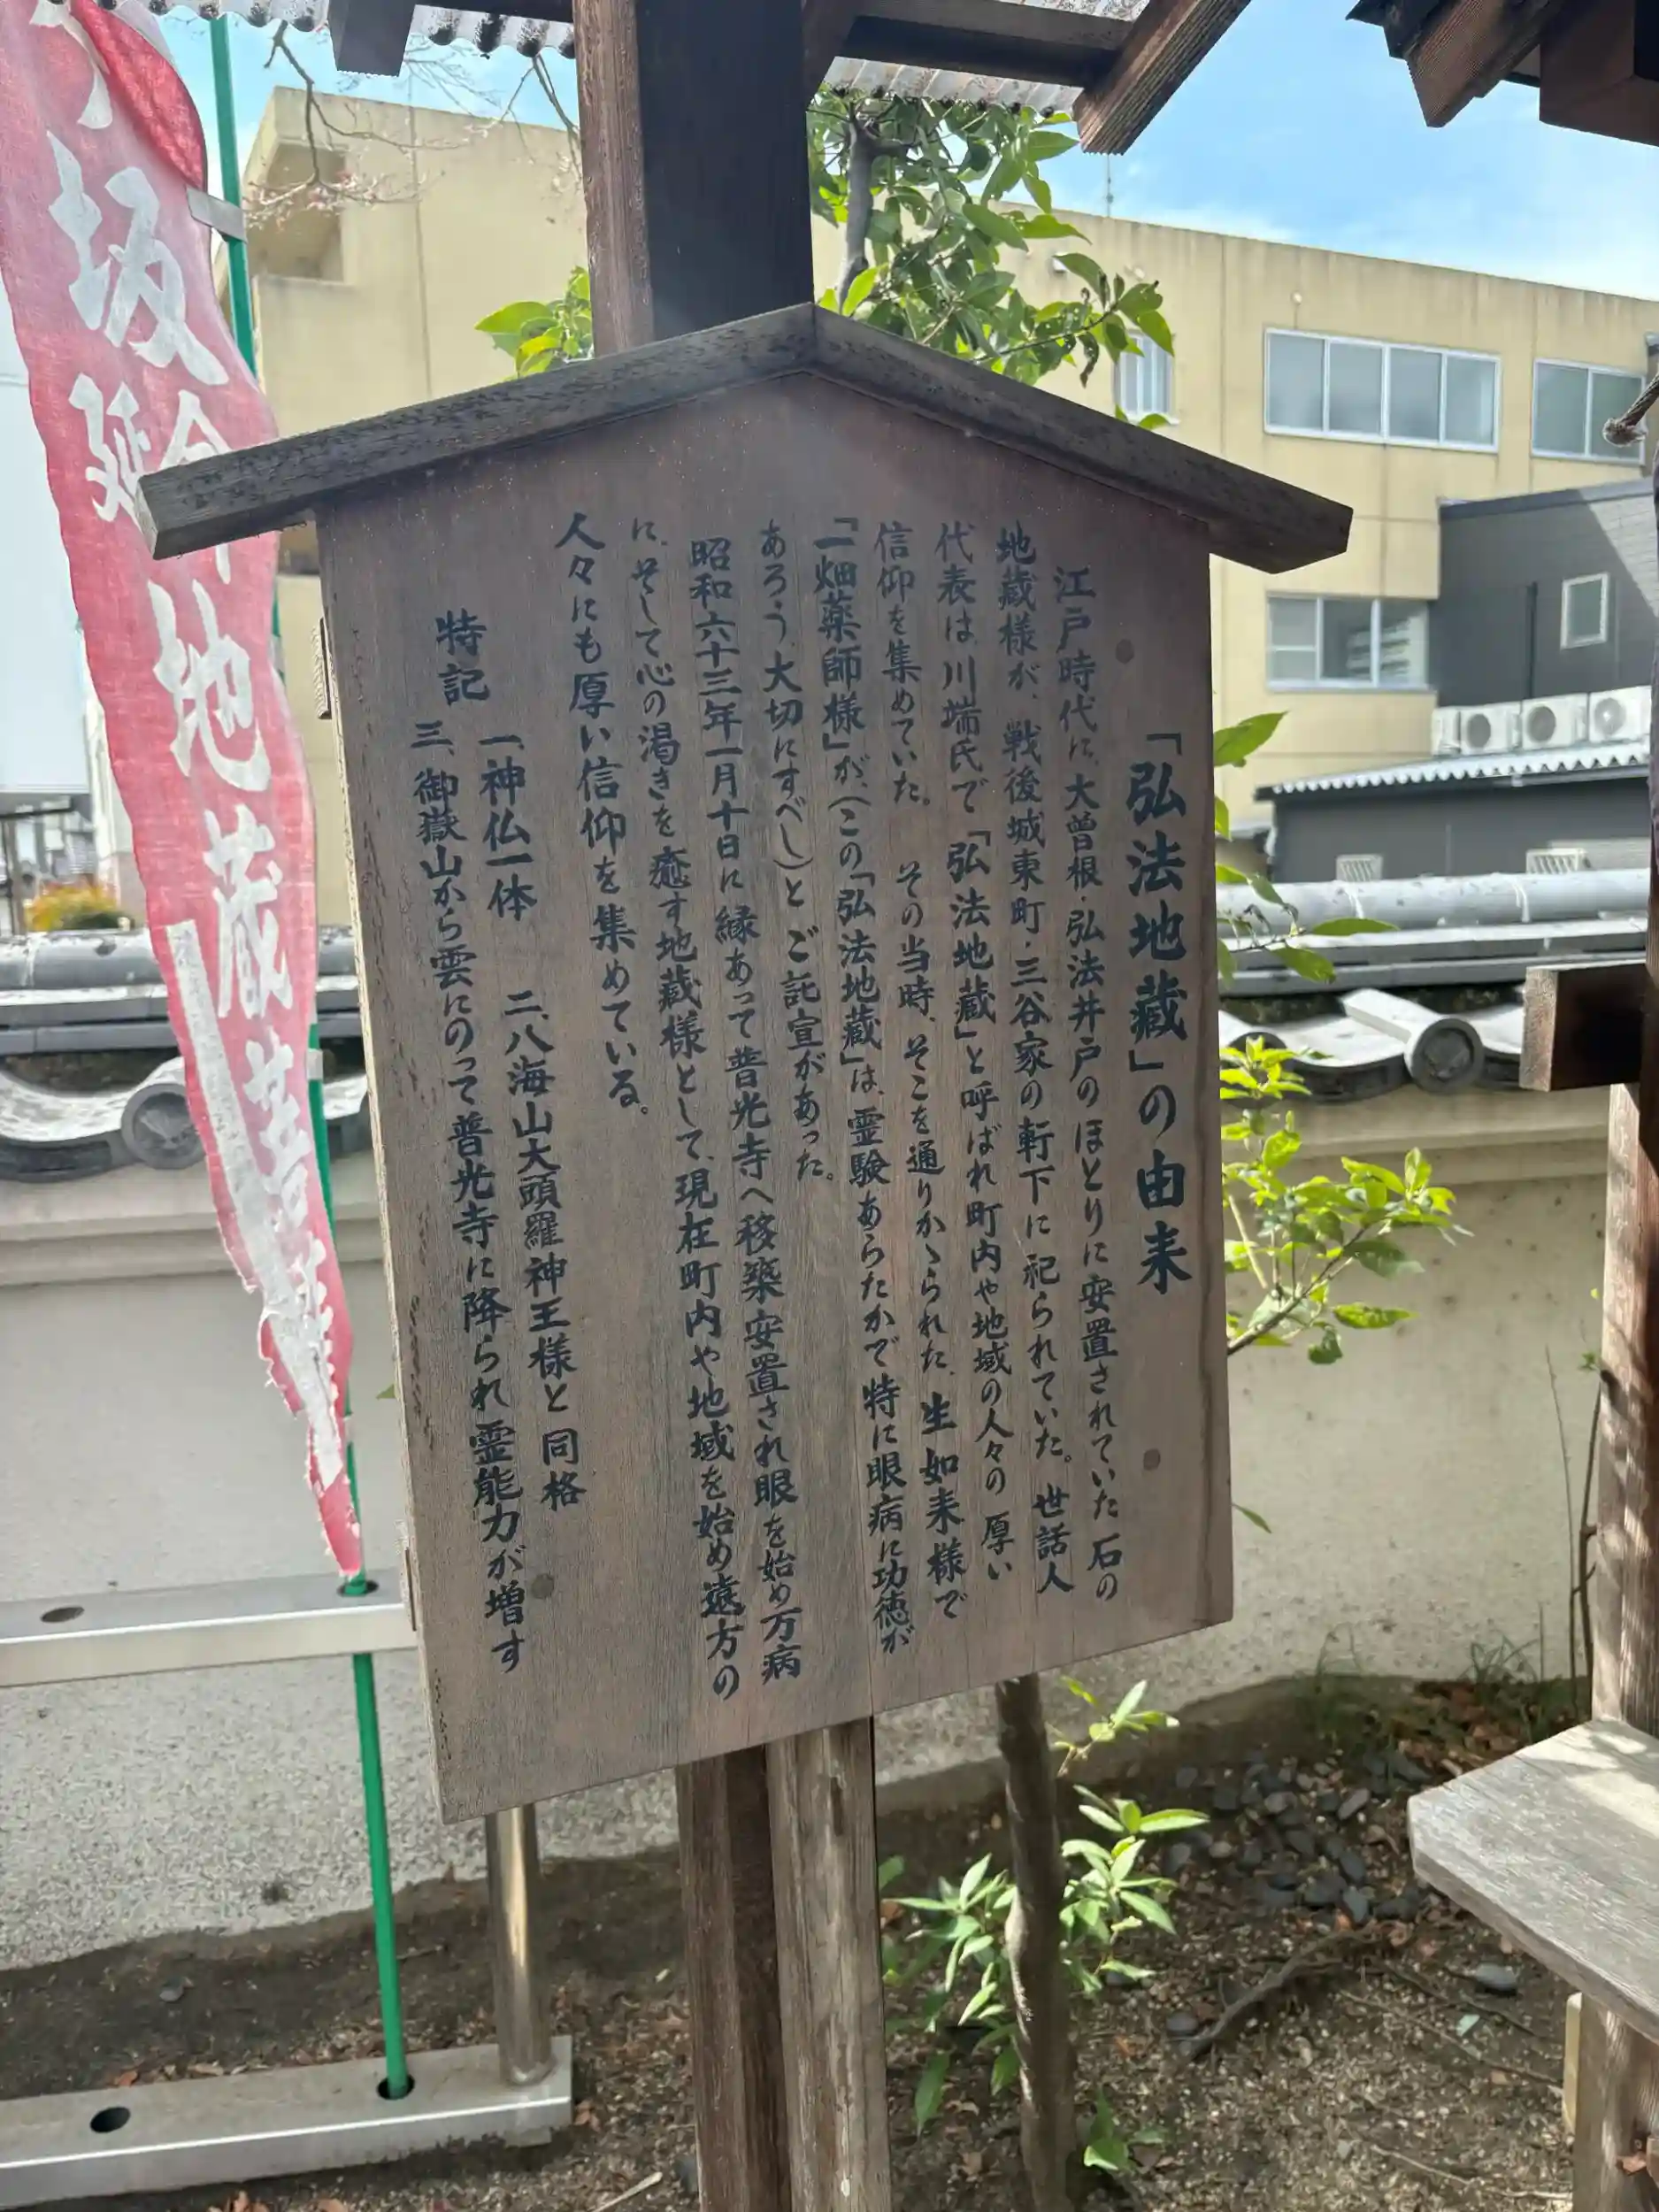 「弘法地蔵」の由来
江戸時代に、大曽根・弘法井戸のほとりに安置されていた石の
地蔵様が、戦後城東町・三谷家の軒下に祀られていた。世話人
代表は、川端氏で「弘法地蔵」と呼ばれ町内や地域の人々の厚い
信仰を集めていた。その当時、そこを通りかゝられた、生如来様で
「一畑薬師様」が、(この「弘法地蔵」は、霊験あらたかで特に眼病に功徳が
あろう、大切にすべし)とご託宣があった。
昭和六十三年一月十日に縁あって普光寺へ移築安置され眼を始め万病
に、そして心の渇きを癒す地蔵様として、現在町内や地域を始め遠方の
人々にも厚い信仰を集めている。
特記
一、神仏一体 二、八海山大頭羅神王様と同格
三、御嶽山から雲にのって普光寺に降られ霊能力が増す
坂
延命地蔵菩